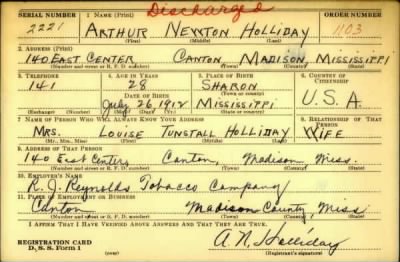 Discharged
SERIAL NUMBER 1. NAME (Print) ORDER NUMBER
2221 ARTHUR NEWTON HOLLIDAY 1103
(First) (Middle) (Last)
2. ADDRESS (Print)
140 EAST CENTER CANTON MADISON, MISSISSIPPI
(Number and street or R. F. D. number) (Town) (County) (State)
3. TELEPHONE 4. AGE IN YEARS 5. PLACE OF BIRTH 6. COUNTRY OF CITIZENSHIP
141 28 SHARON
DATE OF BIRTH (Town or county)
July 26, 1912 MISSISSIPPI U.S.A.
(Exchange) (Number) (Mo.) (Day) (Yr.) (State or country)
7. NAME OF PERSON WHO WILL ALWAYS KNOW YOUR ADDRESS 8. RELATIONSHIP OF THAT PERSON
MRS. LOUISE TUNSTALL HOLLIDAY WIFE
(Mr., Mrs., Miss) (First) (Middle) (Last)
9. ADDRESS OF THAT PERSON
140 East Center, Canton, Madison, Miss.
(Number and street or R. F. D. number) (Town) (County) (State)
10. EMPLOYER'S NAME
R. J. Reynolds Tobacco Company
11. PLACE OF EMPLOYMENT OR BUSINESS
Canton Madison County, Miss
(Number and street or R. F. D. number) (Town) (County) (State)
I AFFIRM THAT I HAVE VERIFIED ABOVE ANSWERS AND THAT THEY ARE TRUE.
REGISTRATION CARD
D. S. S. Form 1 A. N. Holliday
(Registrant's signature)